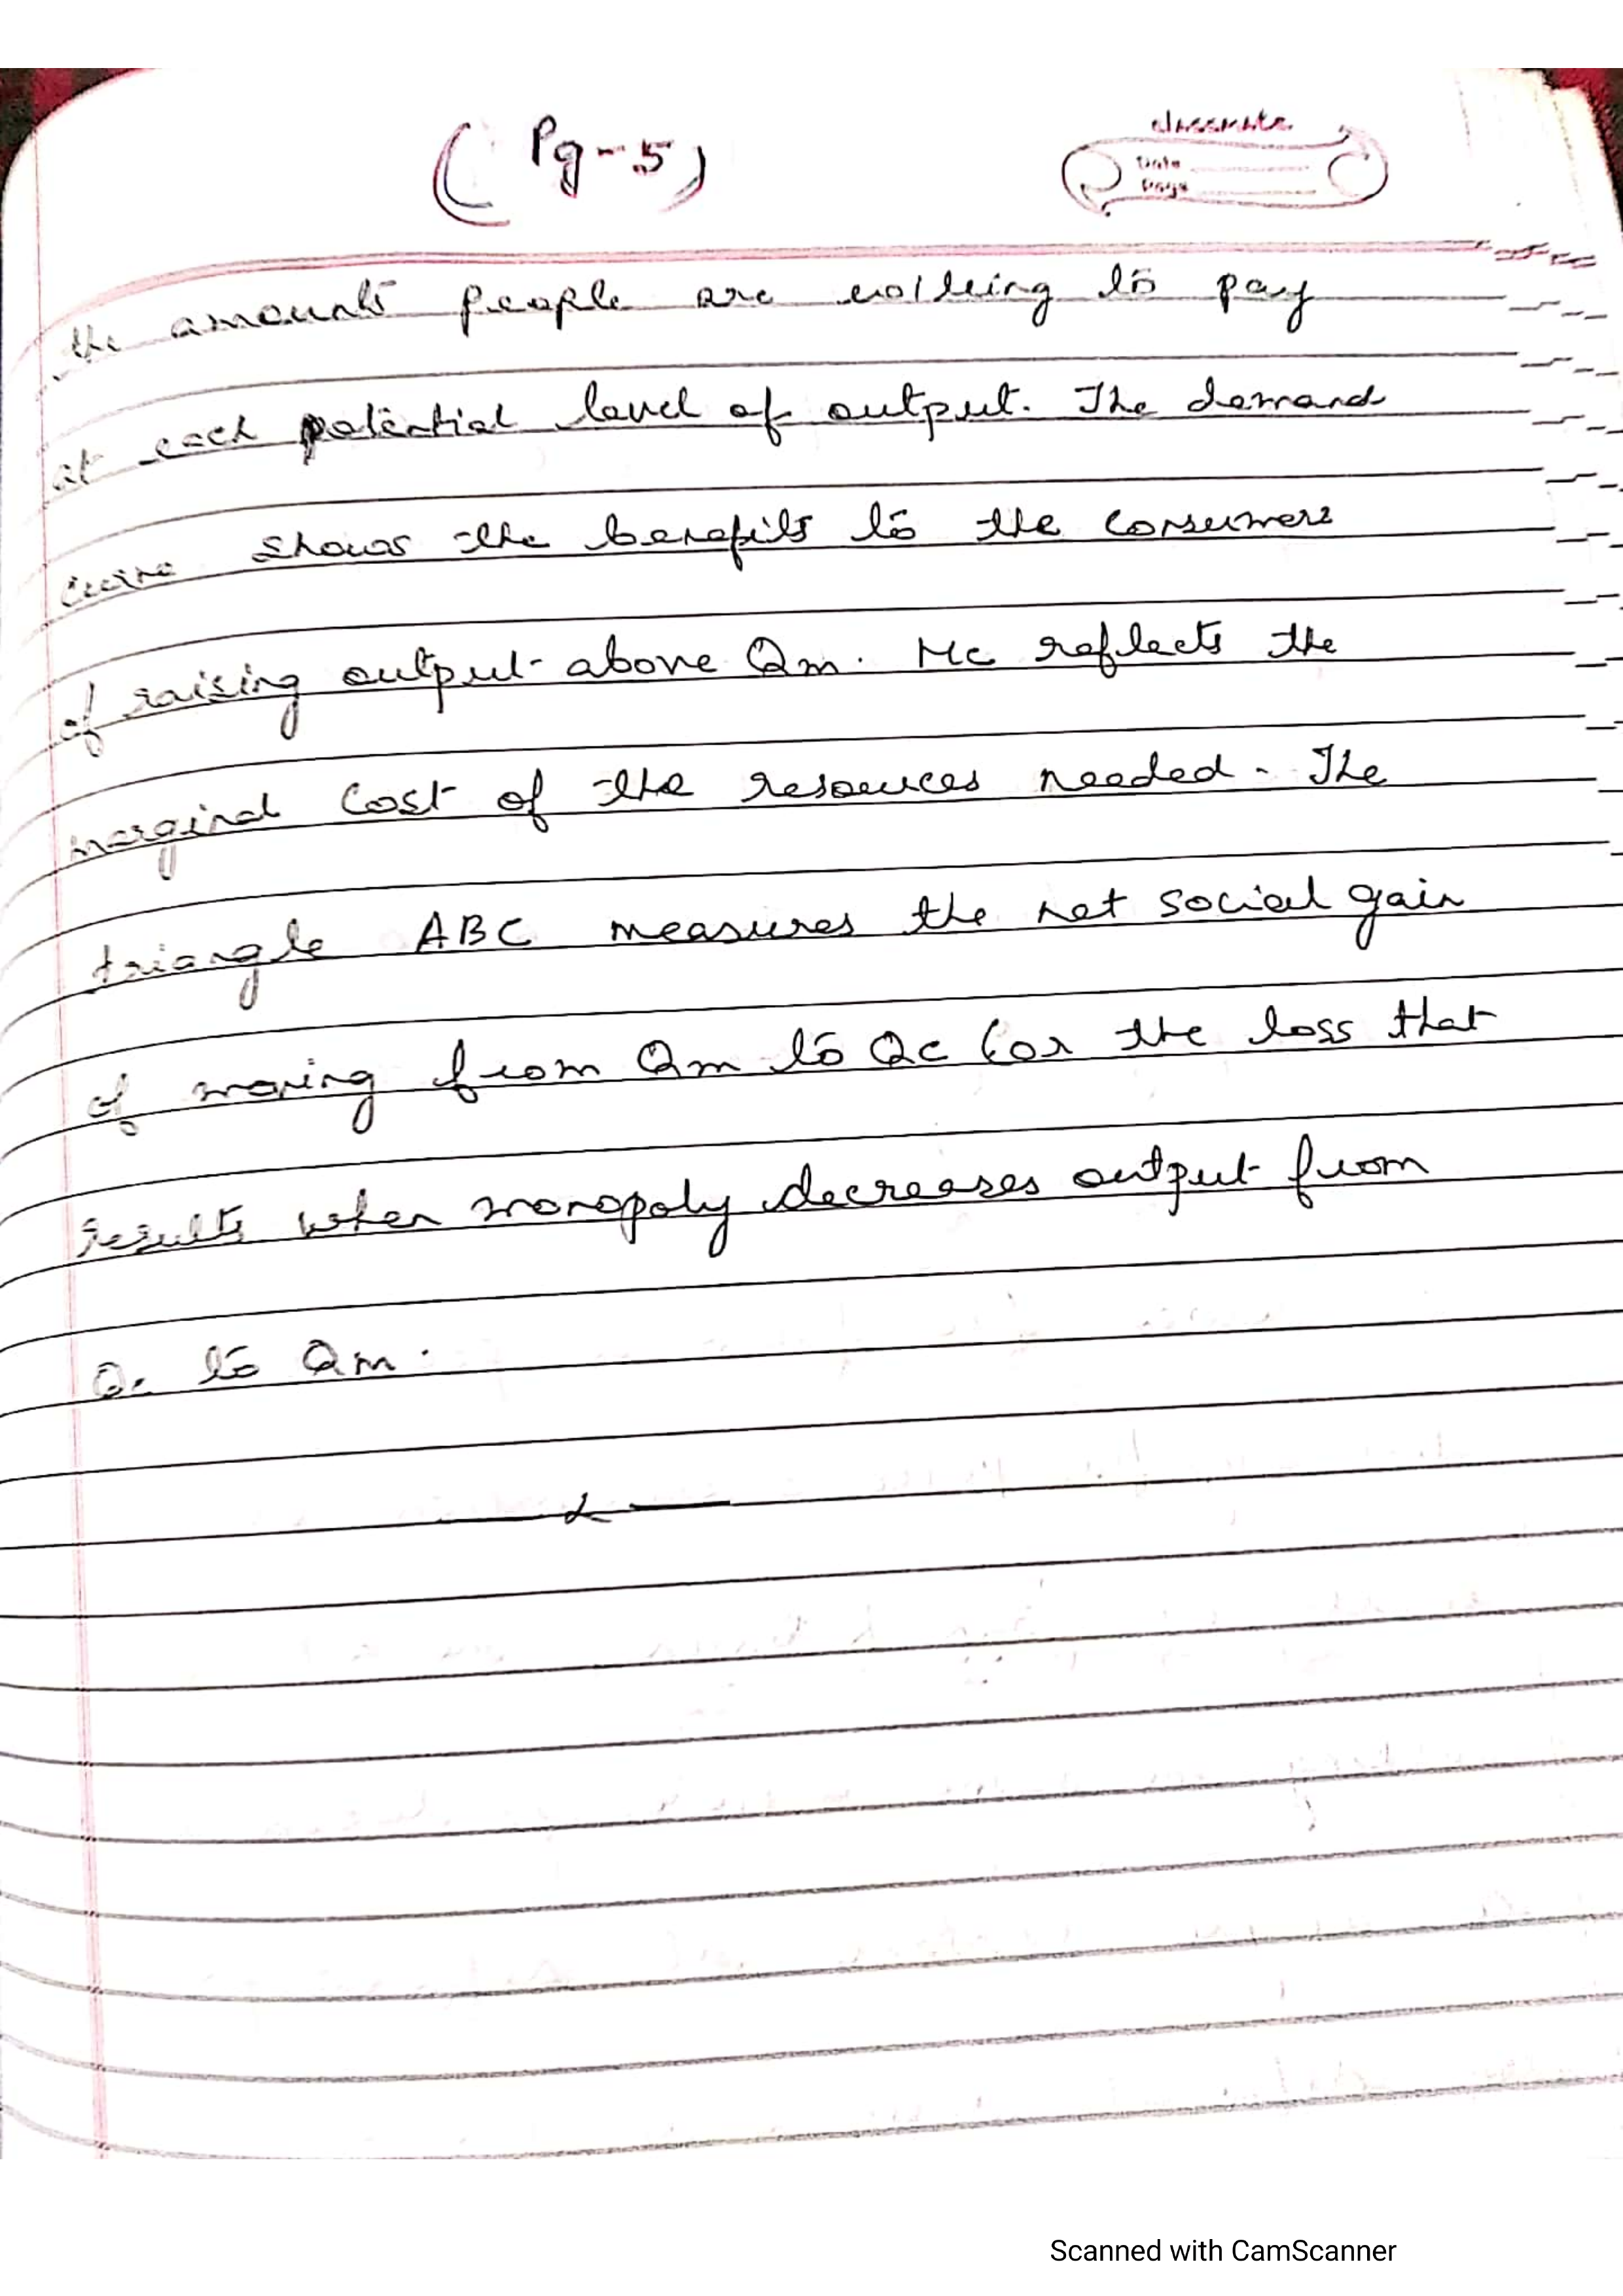 (Pg-5)
classmate
Date
Page
the amounts people are willing to pay
at each potential level of output. The demand
curve shows the benefits to the consumers
of raising output above Qm. Mc reflects the
marginal cost of the resources needed. The
triangle ABC measures the net social gain
of moving from Qm to Qc (or the loss that
results when monopoly decreases output from
Qc to Qm.
Scanned with CamScanner